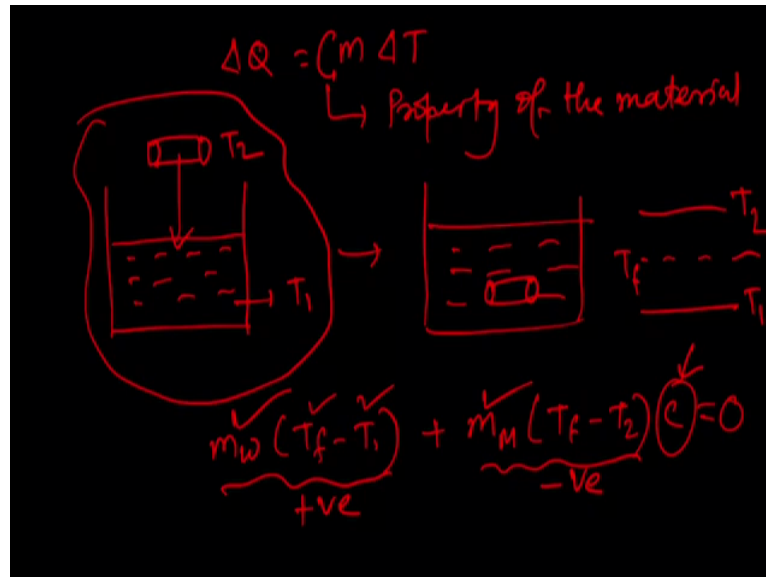 ΔQ = C m ΔT
↳ Property of the material
T₂
T₁
T₂
T_f
T₁
m_w (T_f - T₁) + m_M (T_f - T₂) C = 0
+ve
-ve